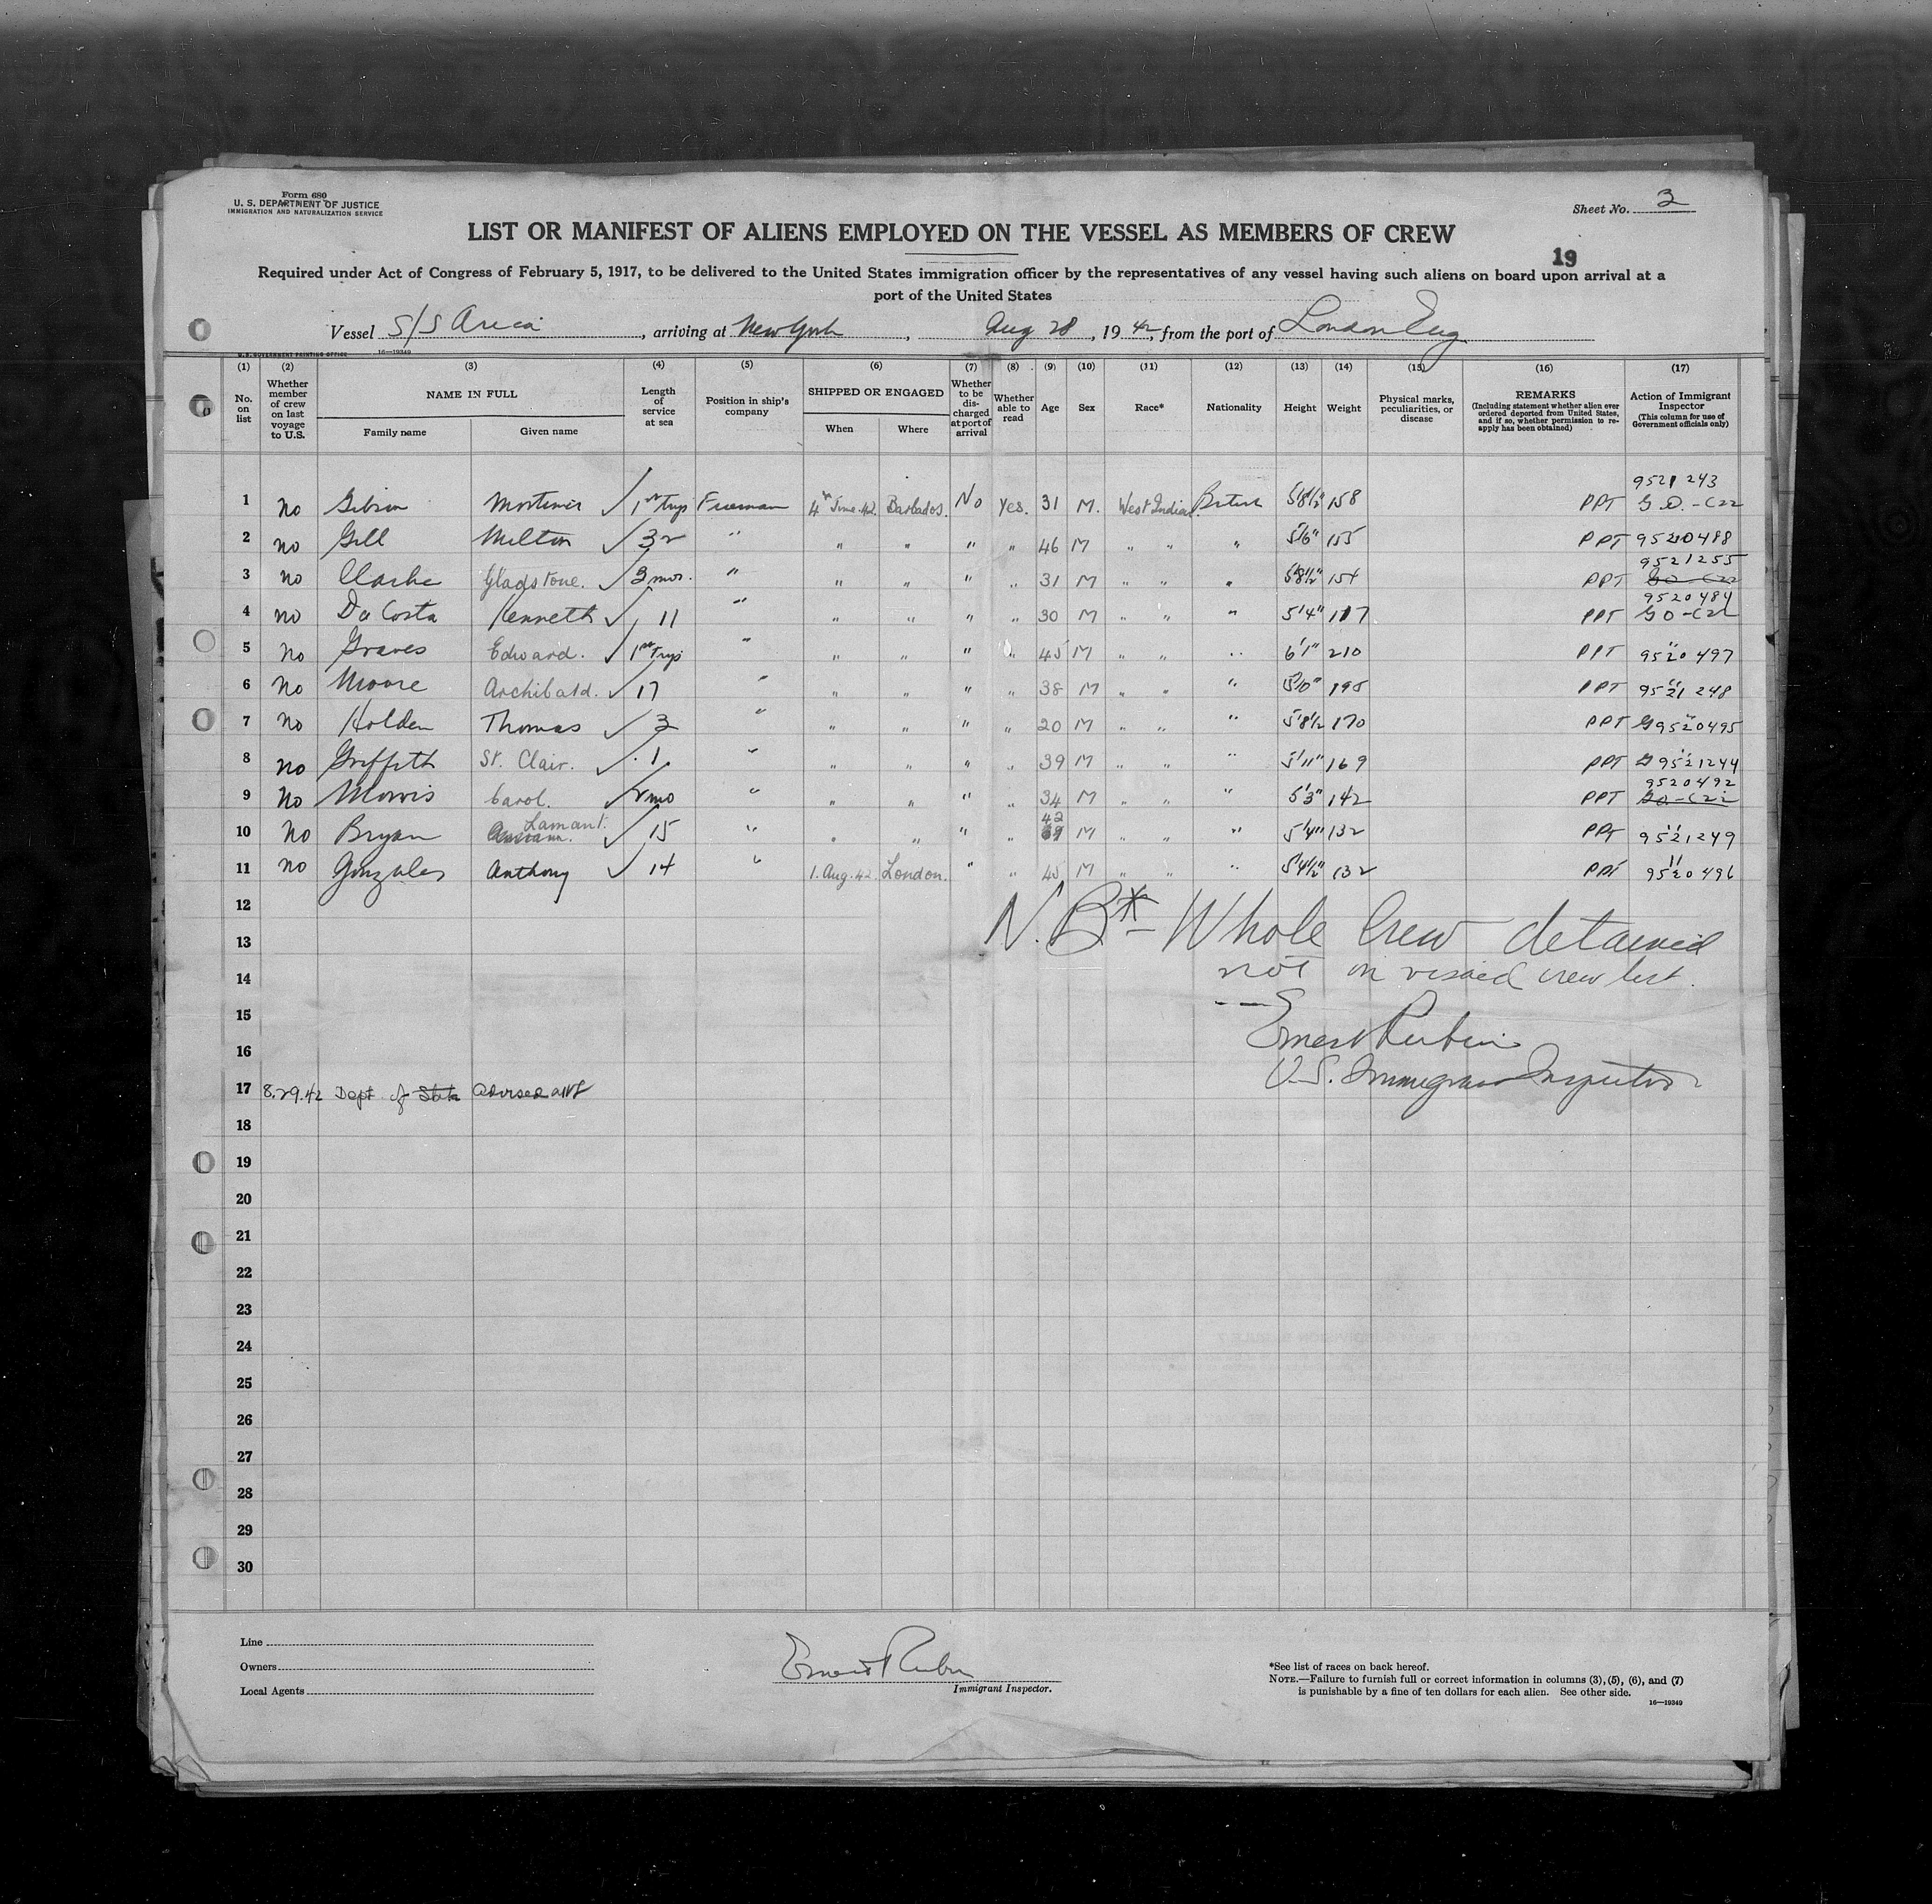 Form 680
U. S. DEPARTMENT OF JUSTICE
IMMIGRATION AND NATURALIZATION SERVICE
Sheet No. 3
LIST OR MANIFEST OF ALIENS EMPLOYED ON THE VESSEL AS MEMBERS OF CREW
19
Required under Act of Congress of February 5, 1917, to be delivered to the United States immigration officer by the representatives of any vessel having such aliens on board upon arrival at a
port of the United States
Vessel S/S , arriving at New York, Aug 28, 1942, from the port of London Eng
U.S. GOVERNMENT PRINTING OFFICE 16—19349
(1) (2) (3) (4) (5) (6) (7) (8) (9) (10) (11) (12) (13) (14) (15) (16) (17)
No. on list
Whether member of crew on last voyage to U.S.
NAME IN FULL
Family name
Given name
Length of service at sea
Position in ship's company
SHIPPED OR ENGAGED
When
Where
Whether to be discharged at port of arrival
Whether able to read
Age
Sex
Race*
Nationality
Height
Weight
Physical marks, peculiarities, or disease
REMARKS
(Including statement whether alien ever ordered deported from United States, and if so, whether permission to reapply has been obtained)
Action of Immigrant Inspector
(This column for use of Government officials only)
9521 243
1 No Gibson Mortimer ✓ 1st Trip Fireman 4th June 42 Barbados. No Yes. 31 M. West Indian British 5'8½" 158 PPT G.O.-C22
2 No Gill Milton ✓ 32 " " " " " 46 M " " " 5'6" 155 PPT 9520488
9521255
3 No Clarke Gladstone. ✓ 3 mos. " " " " " 31 M " " " 5'8½" 154 PPT GO-C22
9520484
4 No Da Costa Kenneth ✓ 11 " " " " " 30 M " " " 5'4" 117 PPT GO-C22
5 No Graves Edward. ✓ 1st Trip " " " " " 45 M " " " 6'1" 210 PPT 9520 497
6 No Moore Archibald. ✓ 17 " " " " " 38 M " " " 5'10" 195 PPT 9521 248
7 No Holder Thomas ✓ 3 " " " " " 20 M " " " 5'8½ 170 PPT 9520495
8 No Griffith St. Clair. ✓ 1 " " " " " 39 M " " " 5'11" 169 PPT 9521244
9520492
9 No Morris Carol. ✓ mo " " " " " 34 M " " " 5'3" 142 PPT GO-C22
Lamant. 42
10 No Bryan ✓ 15 " " " " " 39 M " " " 5'4" 132 PPT 9521249
11 No Gonzales Anthony ✓ 14 " 1. Aug. 42. London. " " 45 M " " " 5'4½" 132 PPT 9520 496
12
N.B* - Whole Crew detained
13
not on visaed crew list.
14
15
Ernest Rubin
16
U.S. Immigrant Inspector
17 8.29.42 Dept of State advised
18
19
20
21
22
23
24
25
26
27
28
29
30
Line
Owners
Local Agents
Ernest Rubin
Immigrant Inspector.
*See list of races on back hereof.
NOTE.—Failure to furnish full or correct information in columns (3), (5), (6), and (7)
is punishable by a fine of ten dollars for each alien. See other side.
16—19349